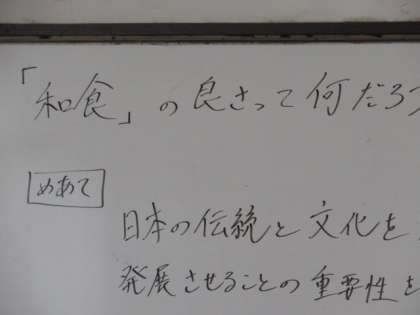 「和食」の良さって何だろう
めあて
日本の伝統と文化を
発展させることの重要性を